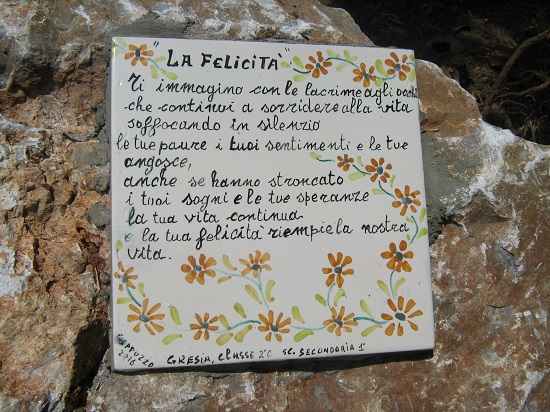 "LA FELICITÀ"
Ti immagino con le lacrime agli occhi
che continui a sorridere alla vita
soffocando in silenzio
le tue paure i tuoi sentimenti e le tue
angosce,
anche se hanno stroncato
i tuoi sogni e le tue speranze
la tua vita continua
e la tua felicità riempie la nostra
vita.
2016
GRESIA, classe 2°C sc. SECONDARIA 1°